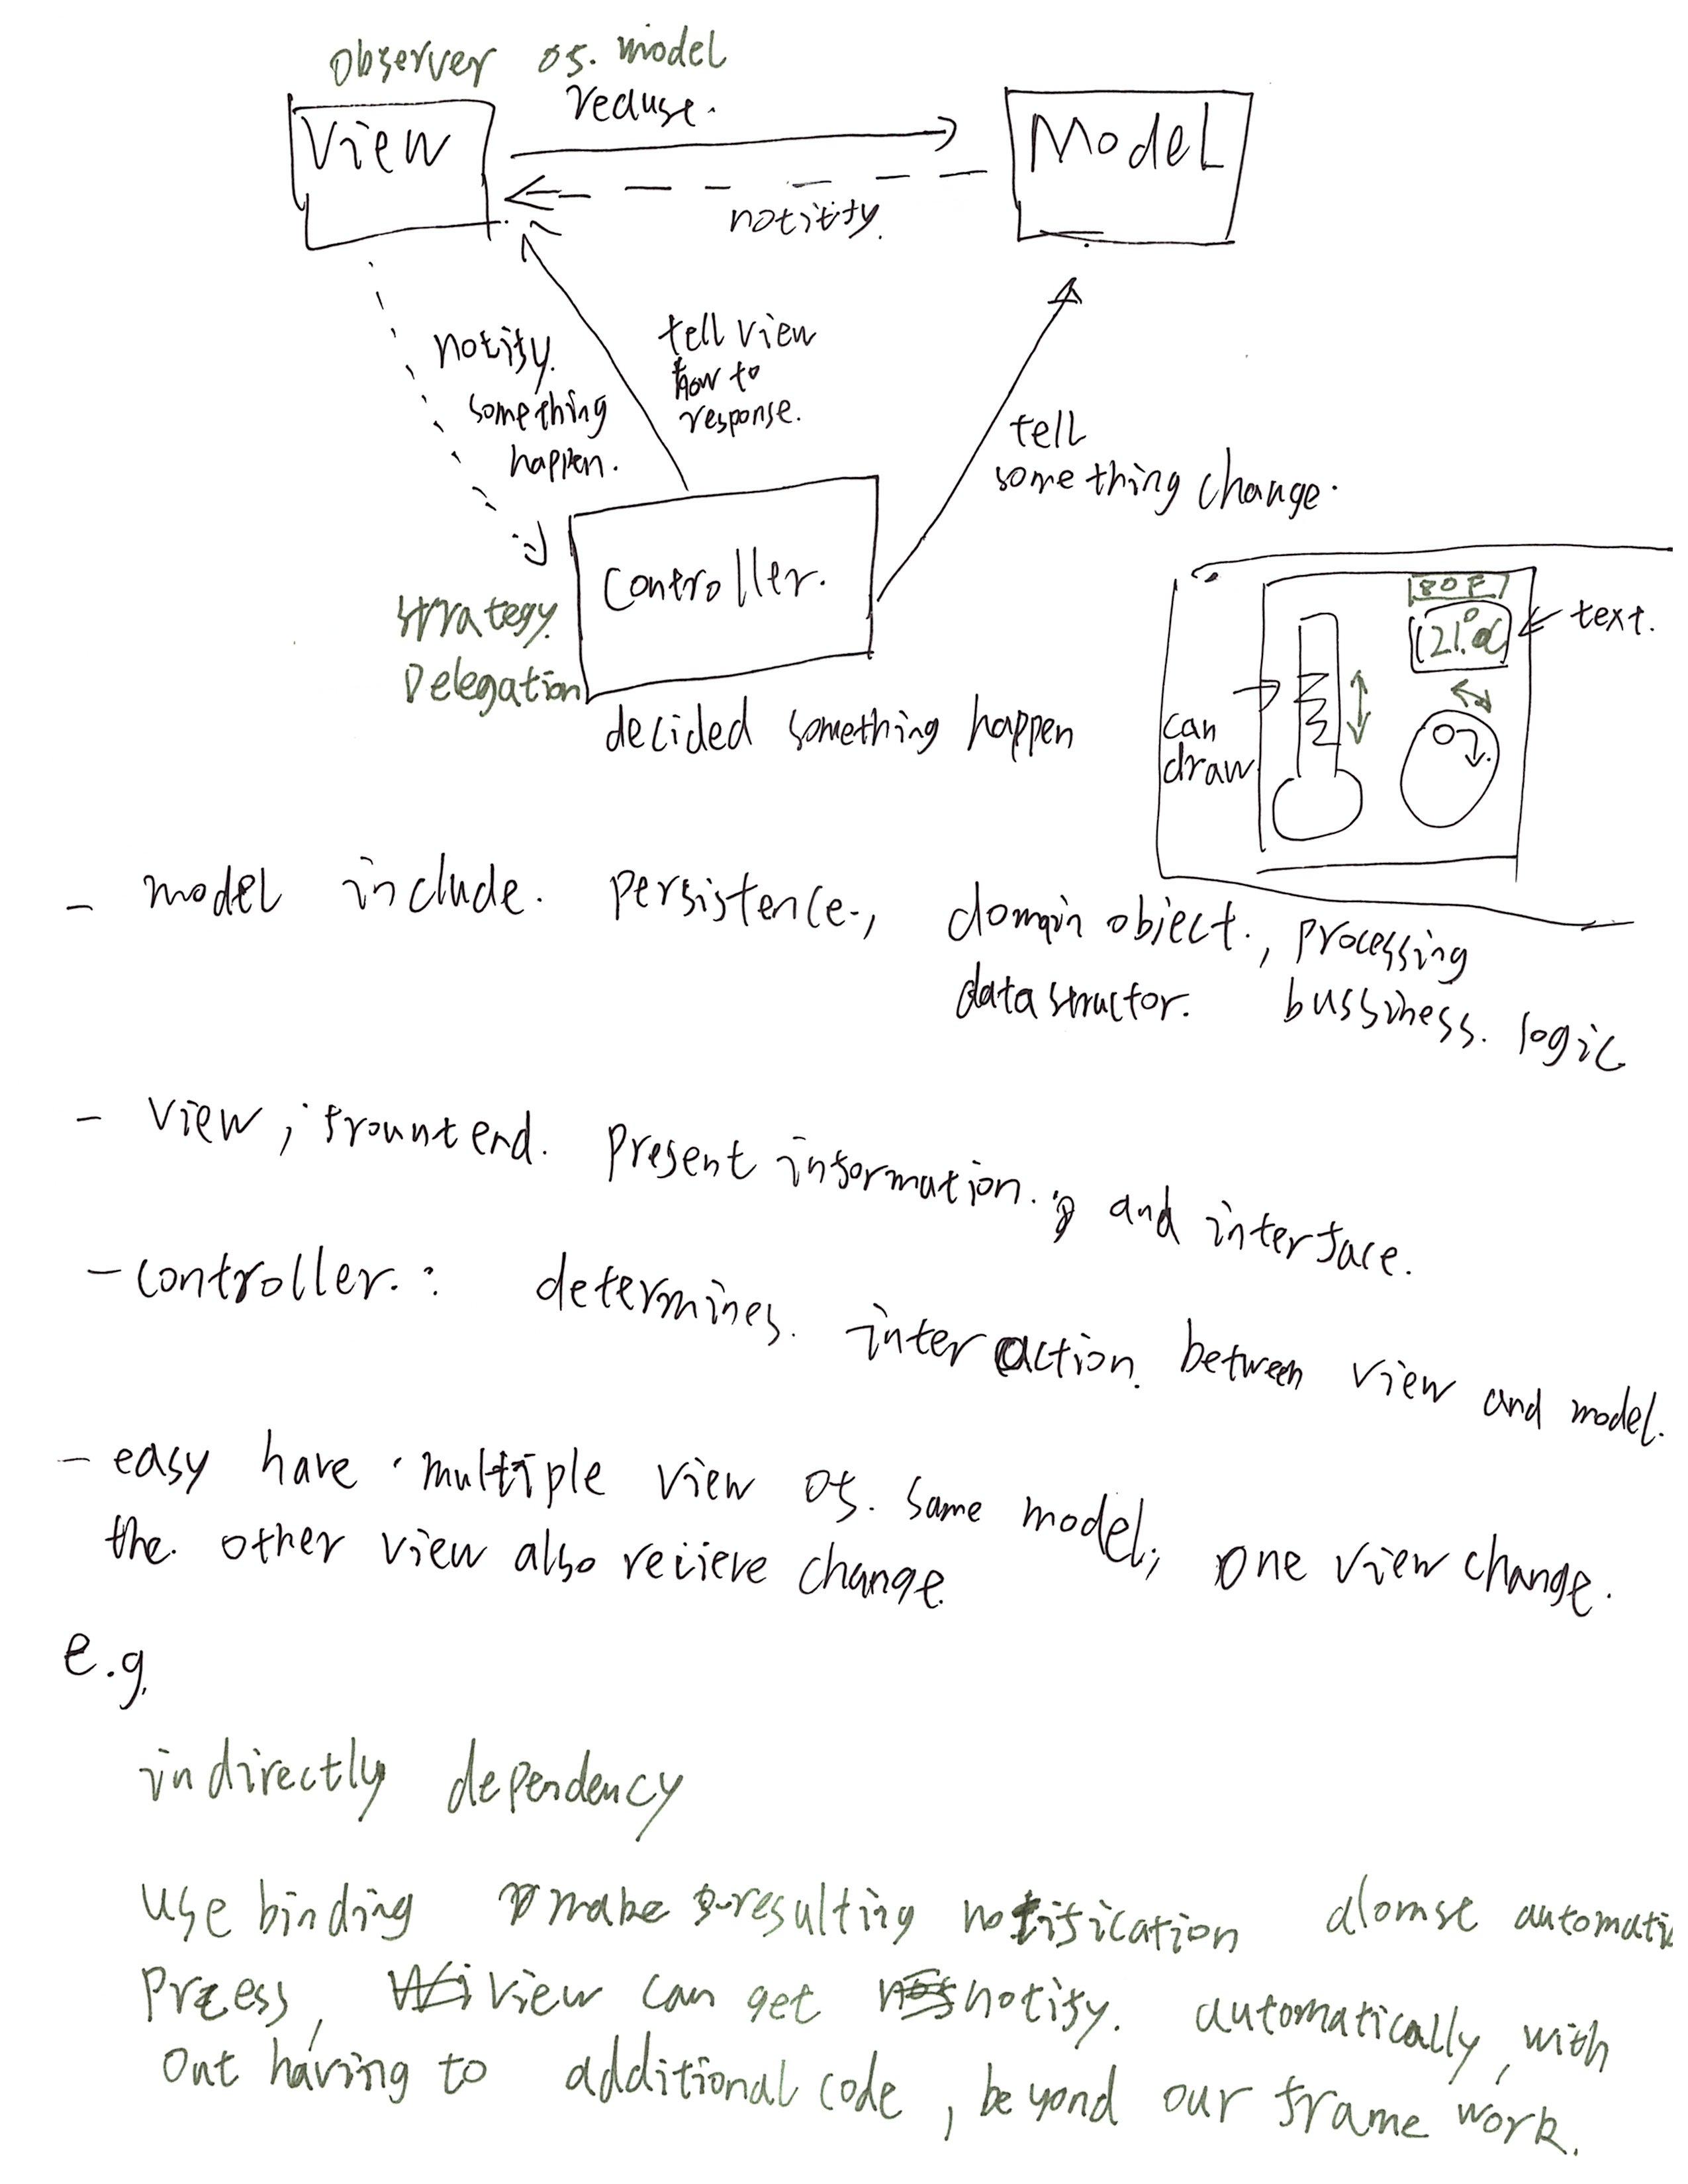 observer of. model
reduse.
View
Model
notifity.
notify.
something
happen.
tell view
how to
response.
tell
something change.
controller.
strategy
Delegation
decided something happen
80F
21°c
text.
can
draw
- model include. persistence., domain object., processing
datastructor. bussiness. logic
- view; frountend. present information. and interface.
- controller.: determines. interaction. between view and model.
- easy have multiple view of. same model, one view change.
the. other view also recieve change.
e.g.
indirectly dependency
use binding make resulting notification alomse automatic
process, view can get notify. automatically, with
out having to additional code, beyond our frame work.